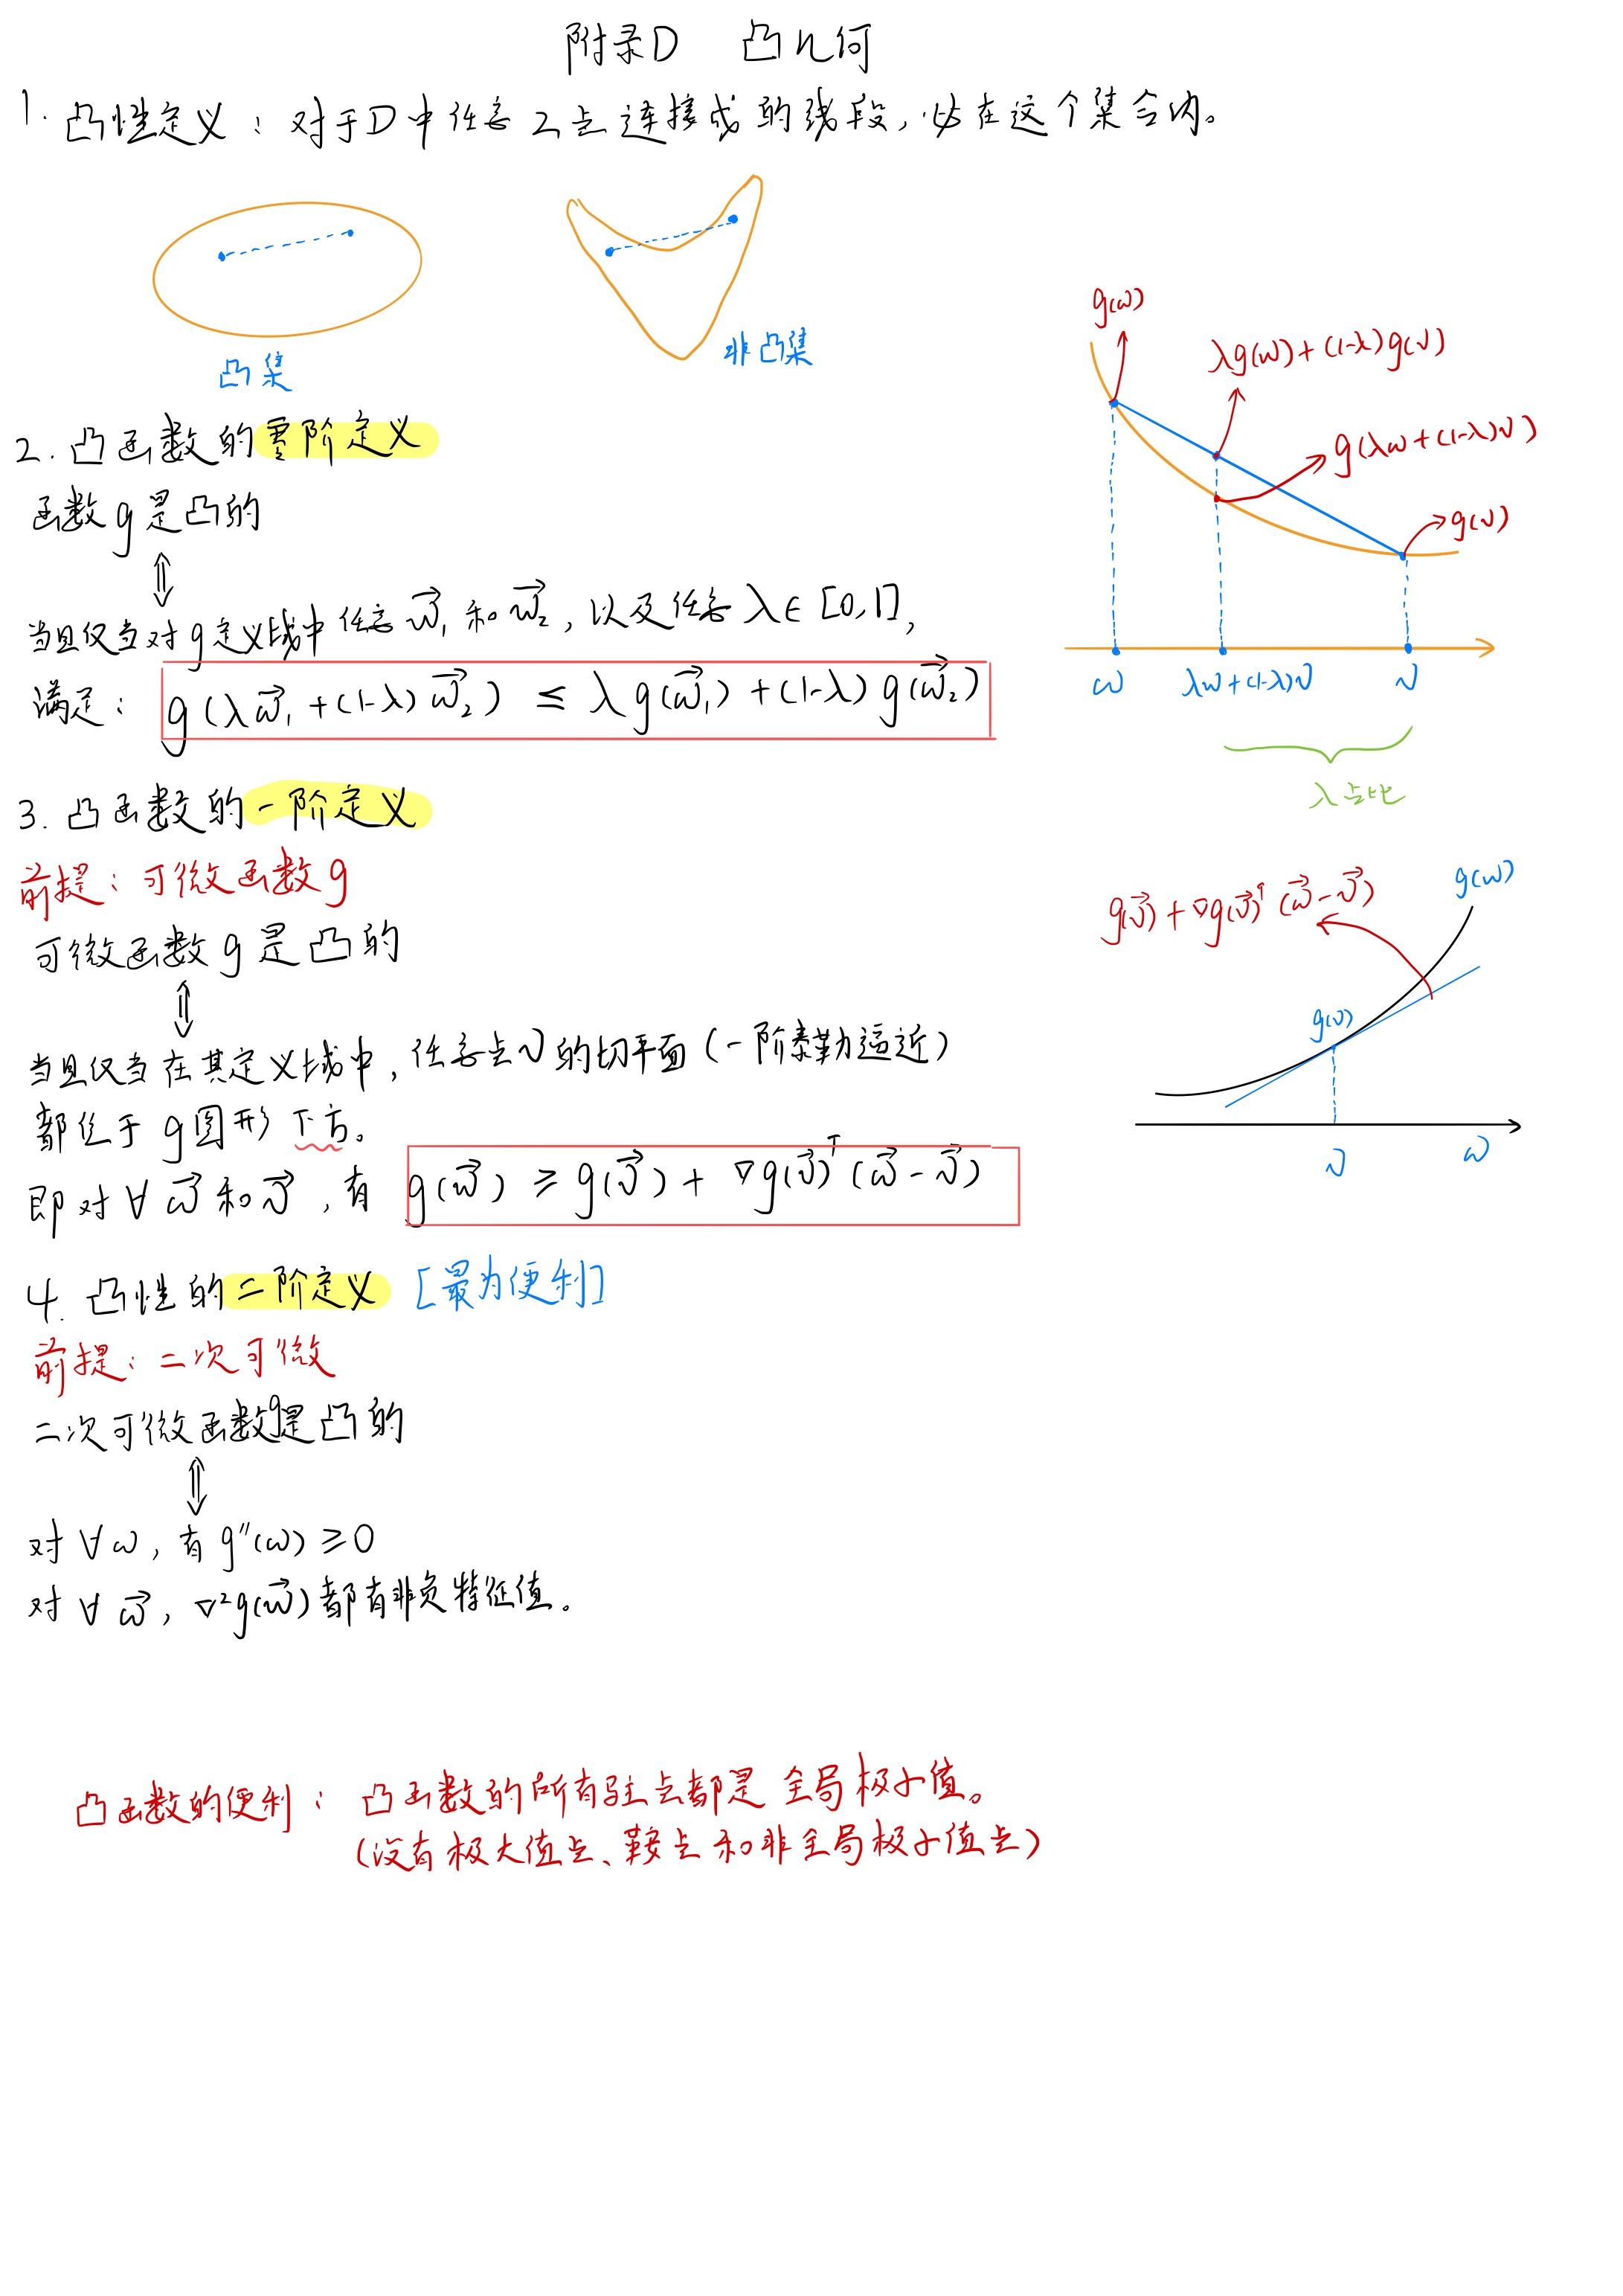 附录D 凸几何
1. 凸性定义：对于D中任意2点连接成的线段，必在这个集合内。
凸集
非凸集
2. 凸函数的零阶定义
函数g是凸的
⇕
当且仅当对g定义域中任意 w⃗₁ 和 w⃗₂，以及任意 λ∈[0,1]，
满足： g(λw⃗₁+(1-λ)w⃗₂) ≤ λg(w⃗₁)+(1-λ)g(w⃗₂)
g(w)
λg(w)+(1-λ)g(v)
g(λw+(1-λ)v)
g(v)
w λw+(1-λ)v v
λ占比
3. 凸函数的一阶定义
前提：可微函数g
可微函数g是凸的
⇕
当且仅当在其定义域中，任意点v的切平面(一阶泰勒逼近)
都位于g图形下方。
即对∀w⃗和v⃗，有 g(w⃗) ≥ g(v⃗)+∇g(v⃗)ᵀ(w⃗-v⃗)
g(v⃗)+∇g(v⃗)ᵀ(w⃗-v⃗)
g(w)
g(v)
v w
4. 凸性的二阶定义 [最为便利]
前提：二次可微
二次可微函数g是凸的
⇕
对∀w，有g″(w)≥0
对∀w⃗，∇²g(w⃗)都有非负特征值。
凸函数的便利：凸函数的所有驻点都是全局极小值。
(没有极大值点、鞍点和非全局极小值点)